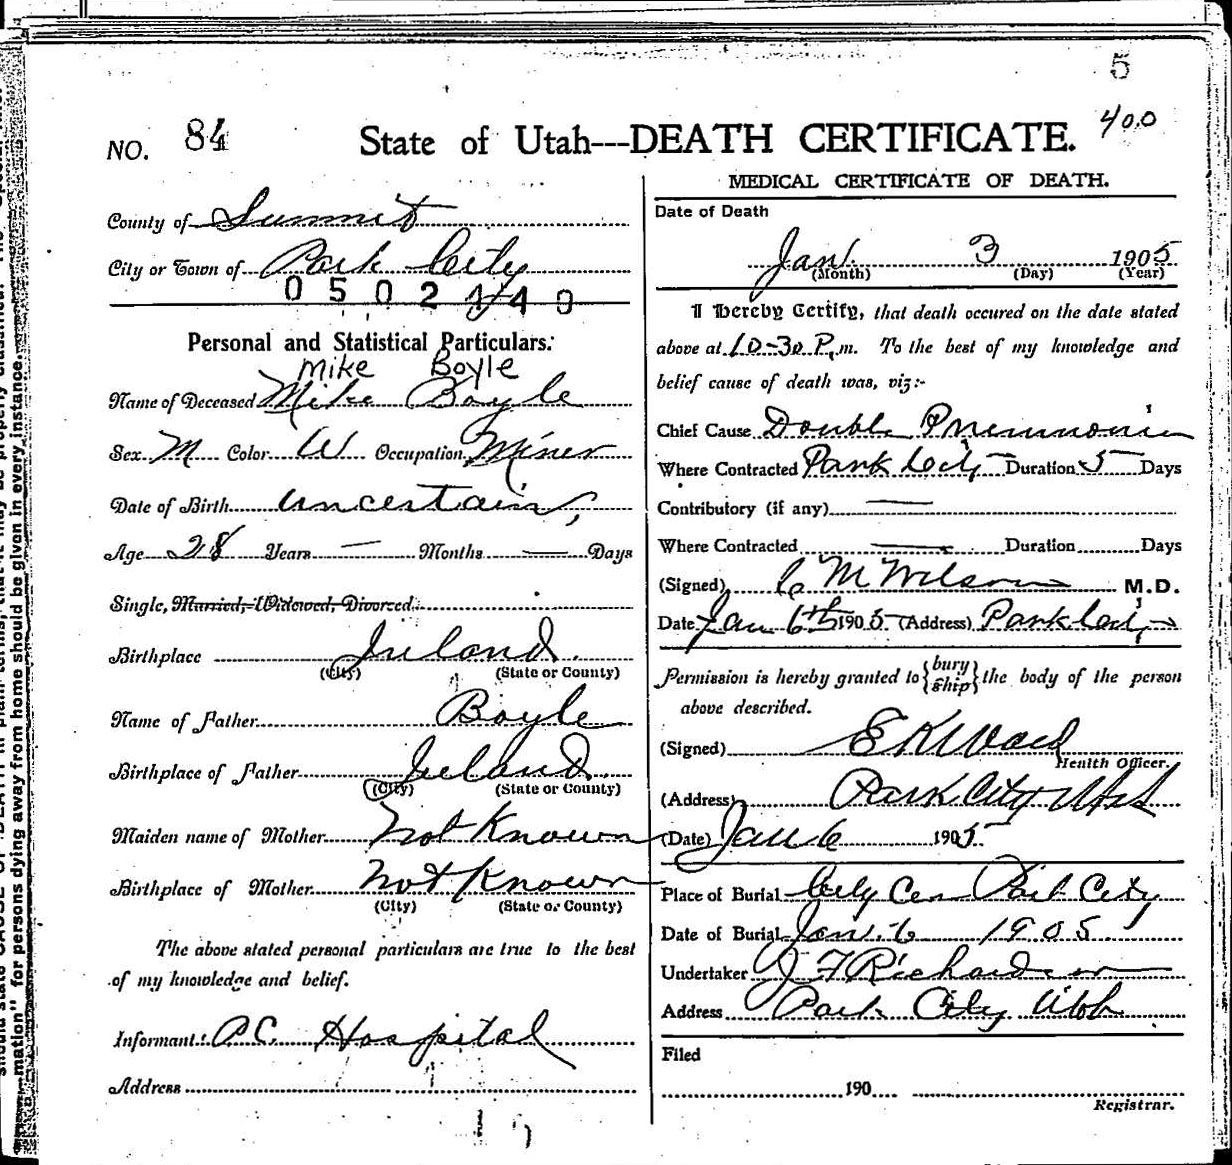 5
400
NO. 84 State of Utah---DEATH CERTIFICATE.
County of Summit
City or Town of Park City
0502140
Personal and Statistical Particulars:
Mike Boyle
Name of Deceased Mike Boyle
Sex M Color W Occupation Miner
Date of Birth Uncertain,
Age 28 Years — Months — Days
Single, Married, Widowed, Divorced
Birthplace Ireland.
(City) (State or County)
Name of Father Boyle
Birthplace of Father Ireland
(City) (State or County)
Maiden name of Mother Not Known
Birthplace of Mother Not Known
(City) (State or County)
The above stated personal particulars are true to the best
of my knowledge and belief.
Informant: P.C. Hospital
Address
MEDICAL CERTIFICATE OF DEATH.
Date of Death
Jan 3 1905
(Month) (Day) (Year)
I Hereby Certify, that death occured on the date stated
above at 10-30 P.m. To the best of my knowledge and
belief cause of death was, viz:-
Chief Cause Double Pneumonia
Where Contracted Park City Duration 5 Days
Contributory (if any) —
Where Contracted — Duration Days
(Signed) C M Wilson M.D.
Date Jan 6th 1905 (Address) Park City
Permission is hereby granted to {bury ship} the body of the person
above described.
(Signed) E K Ward
Health Officer.
(Address) Park City Utah
(Date) Jan 6 1905
Place of Burial City Cem Park City
Date of Burial Jan. 6 1905.
Undertaker J F Richardson
Address Park City Utah
Filed
190
Registrar.
mation" for persons dying away from home should be given in every instance.